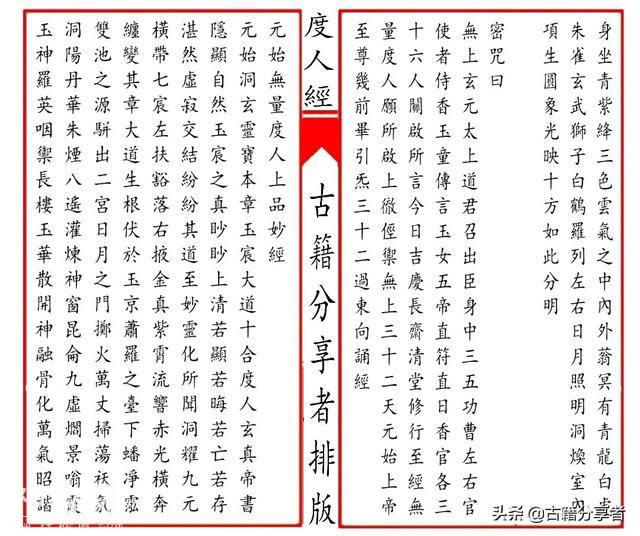 身坐青紫絳三色雲氣之中內外蓊冥有青龍白虎
朱雀玄武獅子白鶴羅列左右日月照明洞煥室內
項生圓象光映十方如此分明
密咒曰
無上玄元太上道君召出臣身中三五功曹左右官
使者侍香玉童傳言玉女五帝直符直日香官各三
十六人關啟所言今日吉慶長齋清堂修行至經無
量度人願所啟上徹徑禦無上三十二天元始上帝
至尊幾前畢引炁三十二過東向誦經
度人經
古籍分享者排版
元始無量度人上品妙經
元始洞玄靈寶本章玉宸大道十合度人玄真帝書
隱顯自然玉宸之真眇眇上清若顯若晦若亡若存
湛然虛寂交結紛紛其道至妙靈化所聞洞耀九元
橫帶七宸左扶豁落右掖金真紫霄流響赤光橫奔
纏變其章大道生根伏於玉京蕭羅之臺下蟠凈
雙池之源駢出二宮日月之門擲火萬丈掃蕩祆氛
洞陽丹華朱煙八遙灌煉神窗昆侖九虛爓景嗡
玉神羅英咽禦長樓玉華散開神融骨化萬氣昭諧
头条 @古籍分享者